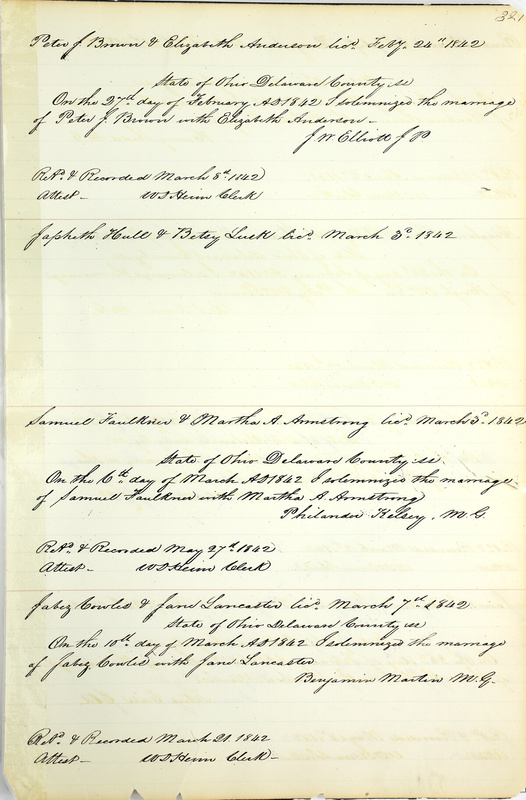 321
Peter J. Brown & Elizabeth Anderson lics. Feby. 24th 1842
State of Ohio Delaware County ss
On the 27d day of February AD 1842 I solemnized the marriage
of Peter J. Brown with Elizabeth Anderson
J W Elliott J P
Retd. & Recorded March 8th 1842
Attest- Clerk
Japheth Hull & Betsy Lusk licd. March 3d. 1842
Samuel Faulkner & Martha A. Armstrong licd. March 3d. 1842
State of Ohio Delaware County ss.
On the 6th day of March AD 1842 I solemnized the marriage
of Samuel Faulkner with Martha A. Armstrong
Philander Kelsey, M.G.
Retd. & Recorded May 27d. 1842
Attest- Clerk
Jabez Cowles & Jane Lancaster licd. March 7d 1842
State of Ohio Delaware County ss
On the 10th day of March AD 1842 I solemnized the marriage
of Jabez Cowles with Jane Lancaster
Benjamin Martin M.G-
Retd. & Recorded March 21. 1842
Attest- Clerk-